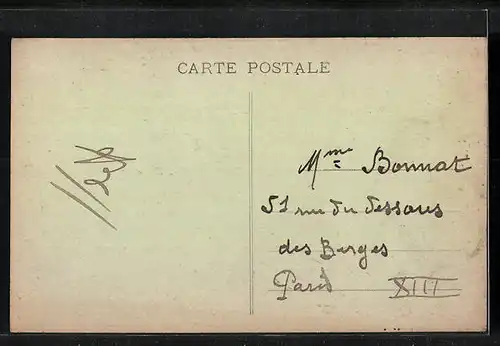 CARTE POSTALE
Mme Bonnat
51 rue du dessous
des Berges
Paris XIII